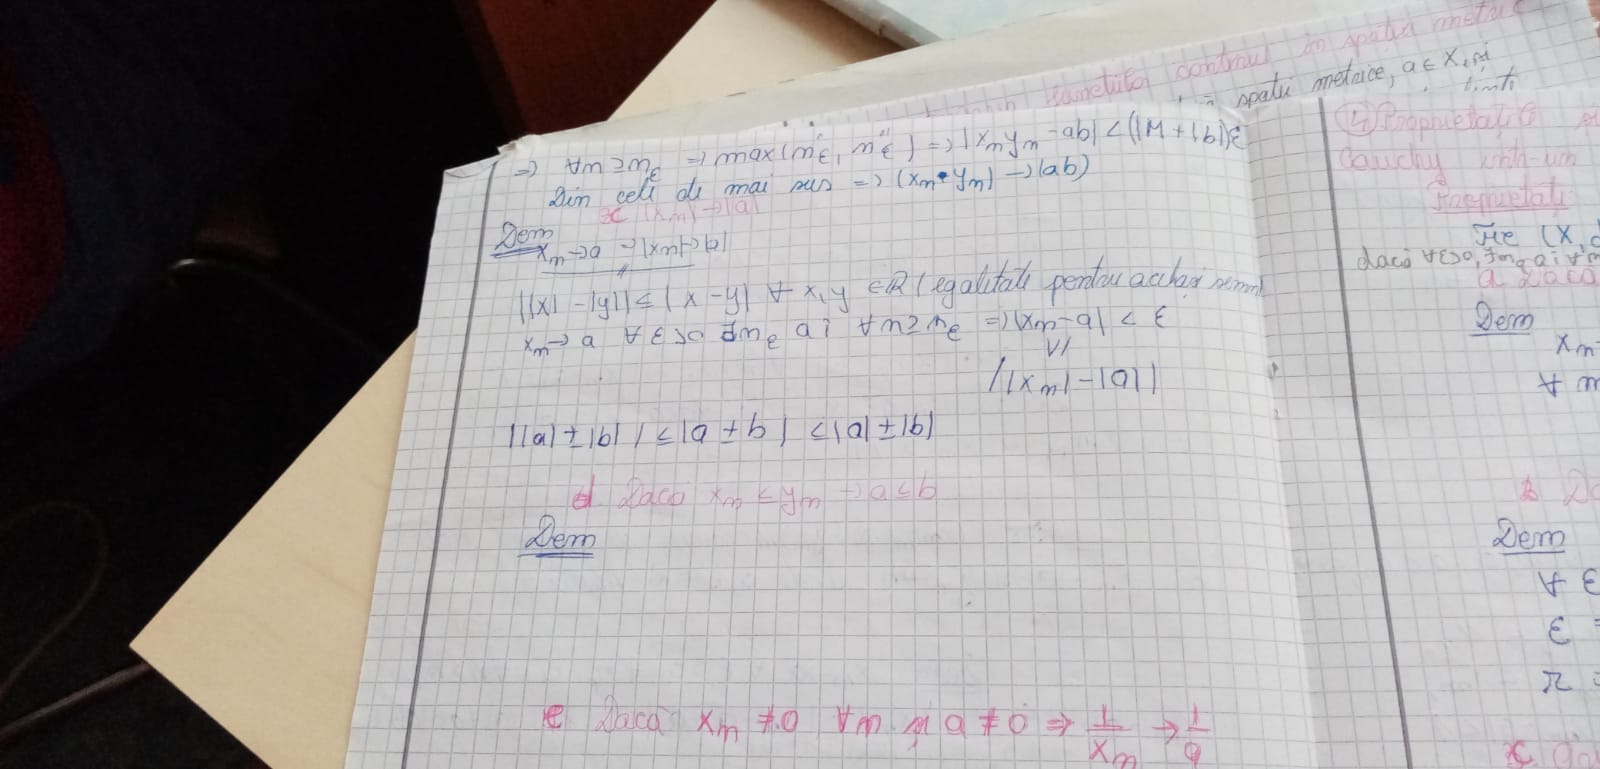 în spații metrice
spații metrice, a ∈ X, și
=) ∀ n ≥ nε =) max(n'ε, n''ε) =) |xn yn - ab| < ε(|b| + M)
Din cele de mai sus =) (xn • yn) -> (ab)
c (xn) -> |a|
Dem
xn -> a =) |xn| -> |a|
||x| - |y|| ≤ |x - y| ∀ x, y ∈ R (egalitate pentru același semn)
xn -> a ∀ ε > 0 ∃ nε a î ∀ n ≥ nε =) |xn - a| < ε
VI
||xn| - |a||
||a| ± |b| ≤ |a ± b| ≤ |a| ± |b|
d Dacă xn ≤ yn -> a ≤ b
Dem
e Dacă xn ≠ 0 ∀ n și a ≠ 0 => 1/xn -> 1/a
4) Proprietăți
Cauchy într-un
Proprietăți
Fie (X, d
dacă ∀ ε > 0, ∃ nε a î ∀ n
Dem
xn
∀ n
b Da
Dem
∀ ε
ε =
c